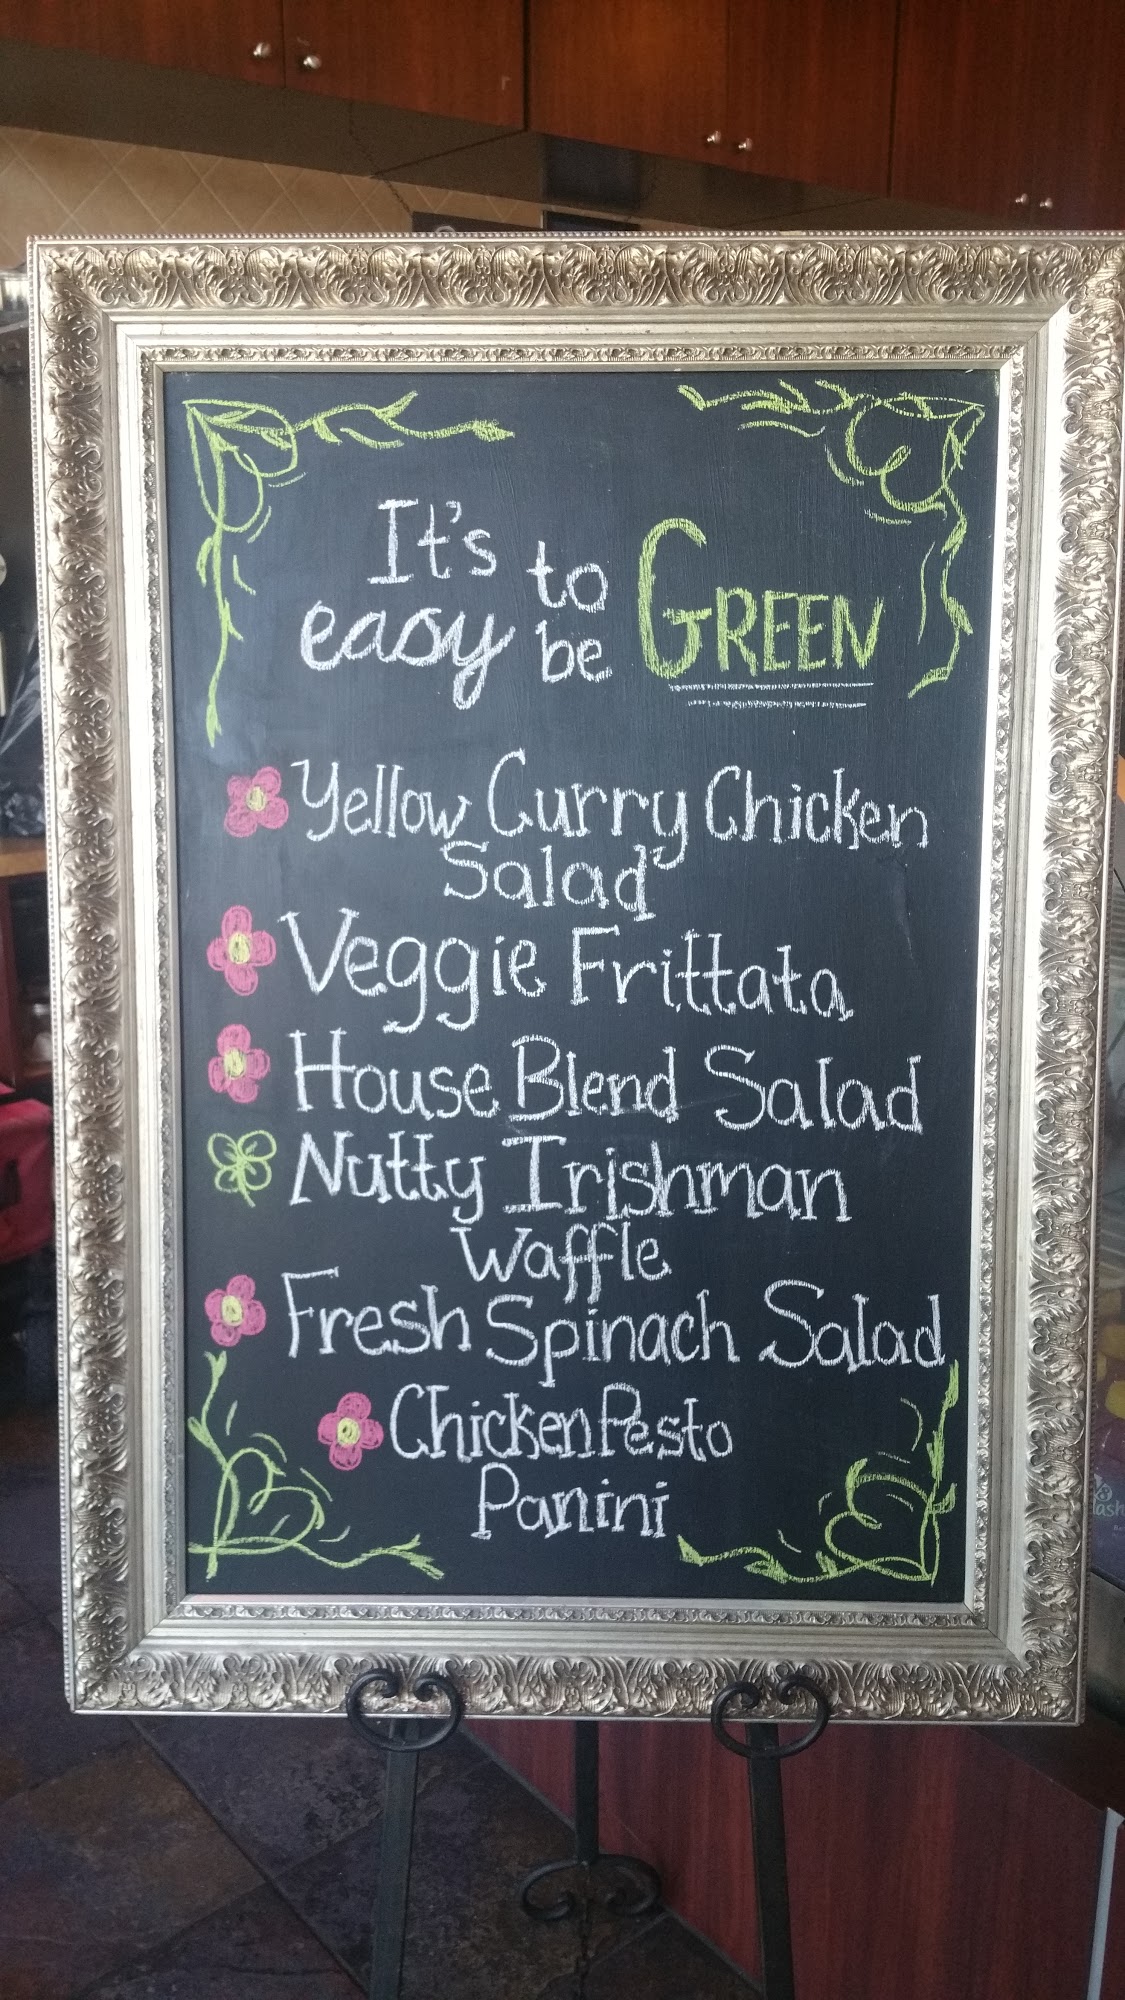 It's
easy
to
be
GREEN
Yellow Curry Chicken
Salad
Veggie Frittata
House Blend Salad
Nutty Irishman
Waffle
Fresh Spinach Salad
Chicken Pesto
Panini